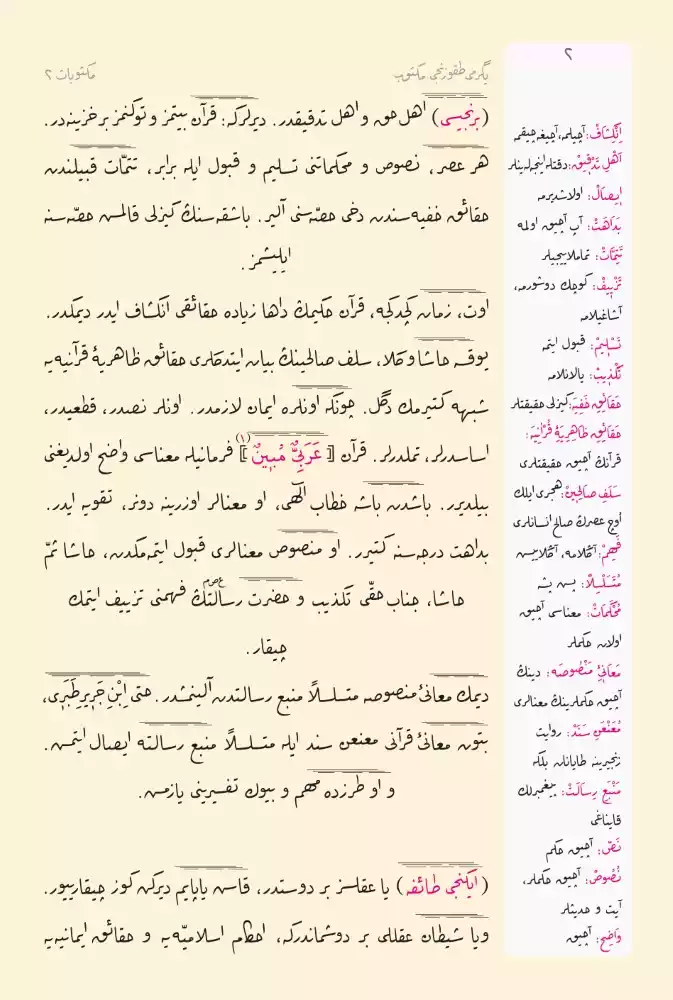 ٢
يگرمی طقوزنجی مكتوب
مكتوبات ٢
(برنجیسی) اهل حق و اهل تدقیقدر. دیرلركه: قرآن بیتمز و توكنمز بر خزینه در.
هر عصر، نصوص و محكماتنی تسلیم و قبول ایله برابر، تتمّات قبیلندن
حقائق خفیه سندن دخی حصّه سنی آلیر. باشقه سنڭ كیزلی قالمش حصّه سنه
ایلیشمز.
اوت، زمان كچدكجه، قرآن حكیمڭ داها زیاده حقائقی انكشاف ایدر دیمكدر.
یوقسه حاشا و كلا، سلف صالحینڭ بیان ایتدكلری حقائق ظاهریۀ قرآنیه یه
شبهه كتیرمك دگل. چونكه اونلره ایمان لازمدر. اونلر نصدر، قطعیدر،
اساسدرلر، تملدرلر. قرآن ﴿عَرَبِیٌّ مُبینٌ﴾(١) فرمانیله معناسی واضح اولدیغنی
بیلدیرر. باشدن باشه خطاب الٰهی، او معنالر اوزرینه دونر، تقویه ایدر.
بداهت درجه سنه كتیرر. او منصوص معنالری قبول ایتمه مكدن، حاشا ثمّ
حاشا، جناب حقّی تكذیب و حضرت رسالتڭ ع ص م فهمنی تزییف ایتمك
چیقار.
دیمك معانئ منصوصه متسلسلًا منبع رسالتدن آلینمشدر. حتی اِبْنِ جَرِيرِ طَبَرِی،
بتون معانئ قرآنی معنعن سند ایله متسلسلًا منبع رسالته ایصال ایتمش.
و او طرزده مهم و بیوك تفسیرینی یازمش.
(ایكنجی طائفه) یا عقلسز بر دوستدر، قاش یاپایم دیركن كوز چیقارییور.
ویا شیطان عقللی بر دوشماندركه، احكام اسلامیّه یه و حقائق ایمانیه یه
اِنْكِشَافْ: آچیلمه، آچیغه چیقمه
اَهْلِ تَدْقِیقْ: دقتله اینجه له ینلر
اِیصَالْ: اولاشدیرمه
بَدَاهَتْ: آپ آچیق اولمه
تَتِمَّاتْ: تماملاییجیلر
تَزْیِیفْ: كوچك دوشورمه،
آشاغیلامه
تَسْلِیمْ: قبول ایتمه
تَكْذِیبْ: یالانلامه
حَقَائِقِ خَفِیَه: كیزلی حقیقتلر
حَقَائِقِ ظَاهِرِیَۀِ قُرْآنِیَه:
قرآنڭ آچیق حقیقتلری
سَلَفِ صَالِحِینْ: هجری ایلك
اوچ عصرڭ صالح انسانلری
فَهِمْ: آڭلامه، آڭلاییش
مُتَسَلْسِلًا: پش پشه
مُحْكَمَاتْ: معناسی آچیق
اولان حكملر
مَعَانِئِ مَنْصُوصَه: دینڭ
آچیق حكملرینڭ معنالری
مُعَنْعَنِ سَنَدْ: روایت
زنجیرینه طایانان بلگه
مَنْبَعِ رِسَالَتْ: پیغمبرلك
قایناغی
نَصْ: آچیق حكم
نُصُوصْ: آچیق حكملر،
آیت و حدیثلر
وَاضِحْ: آچیق